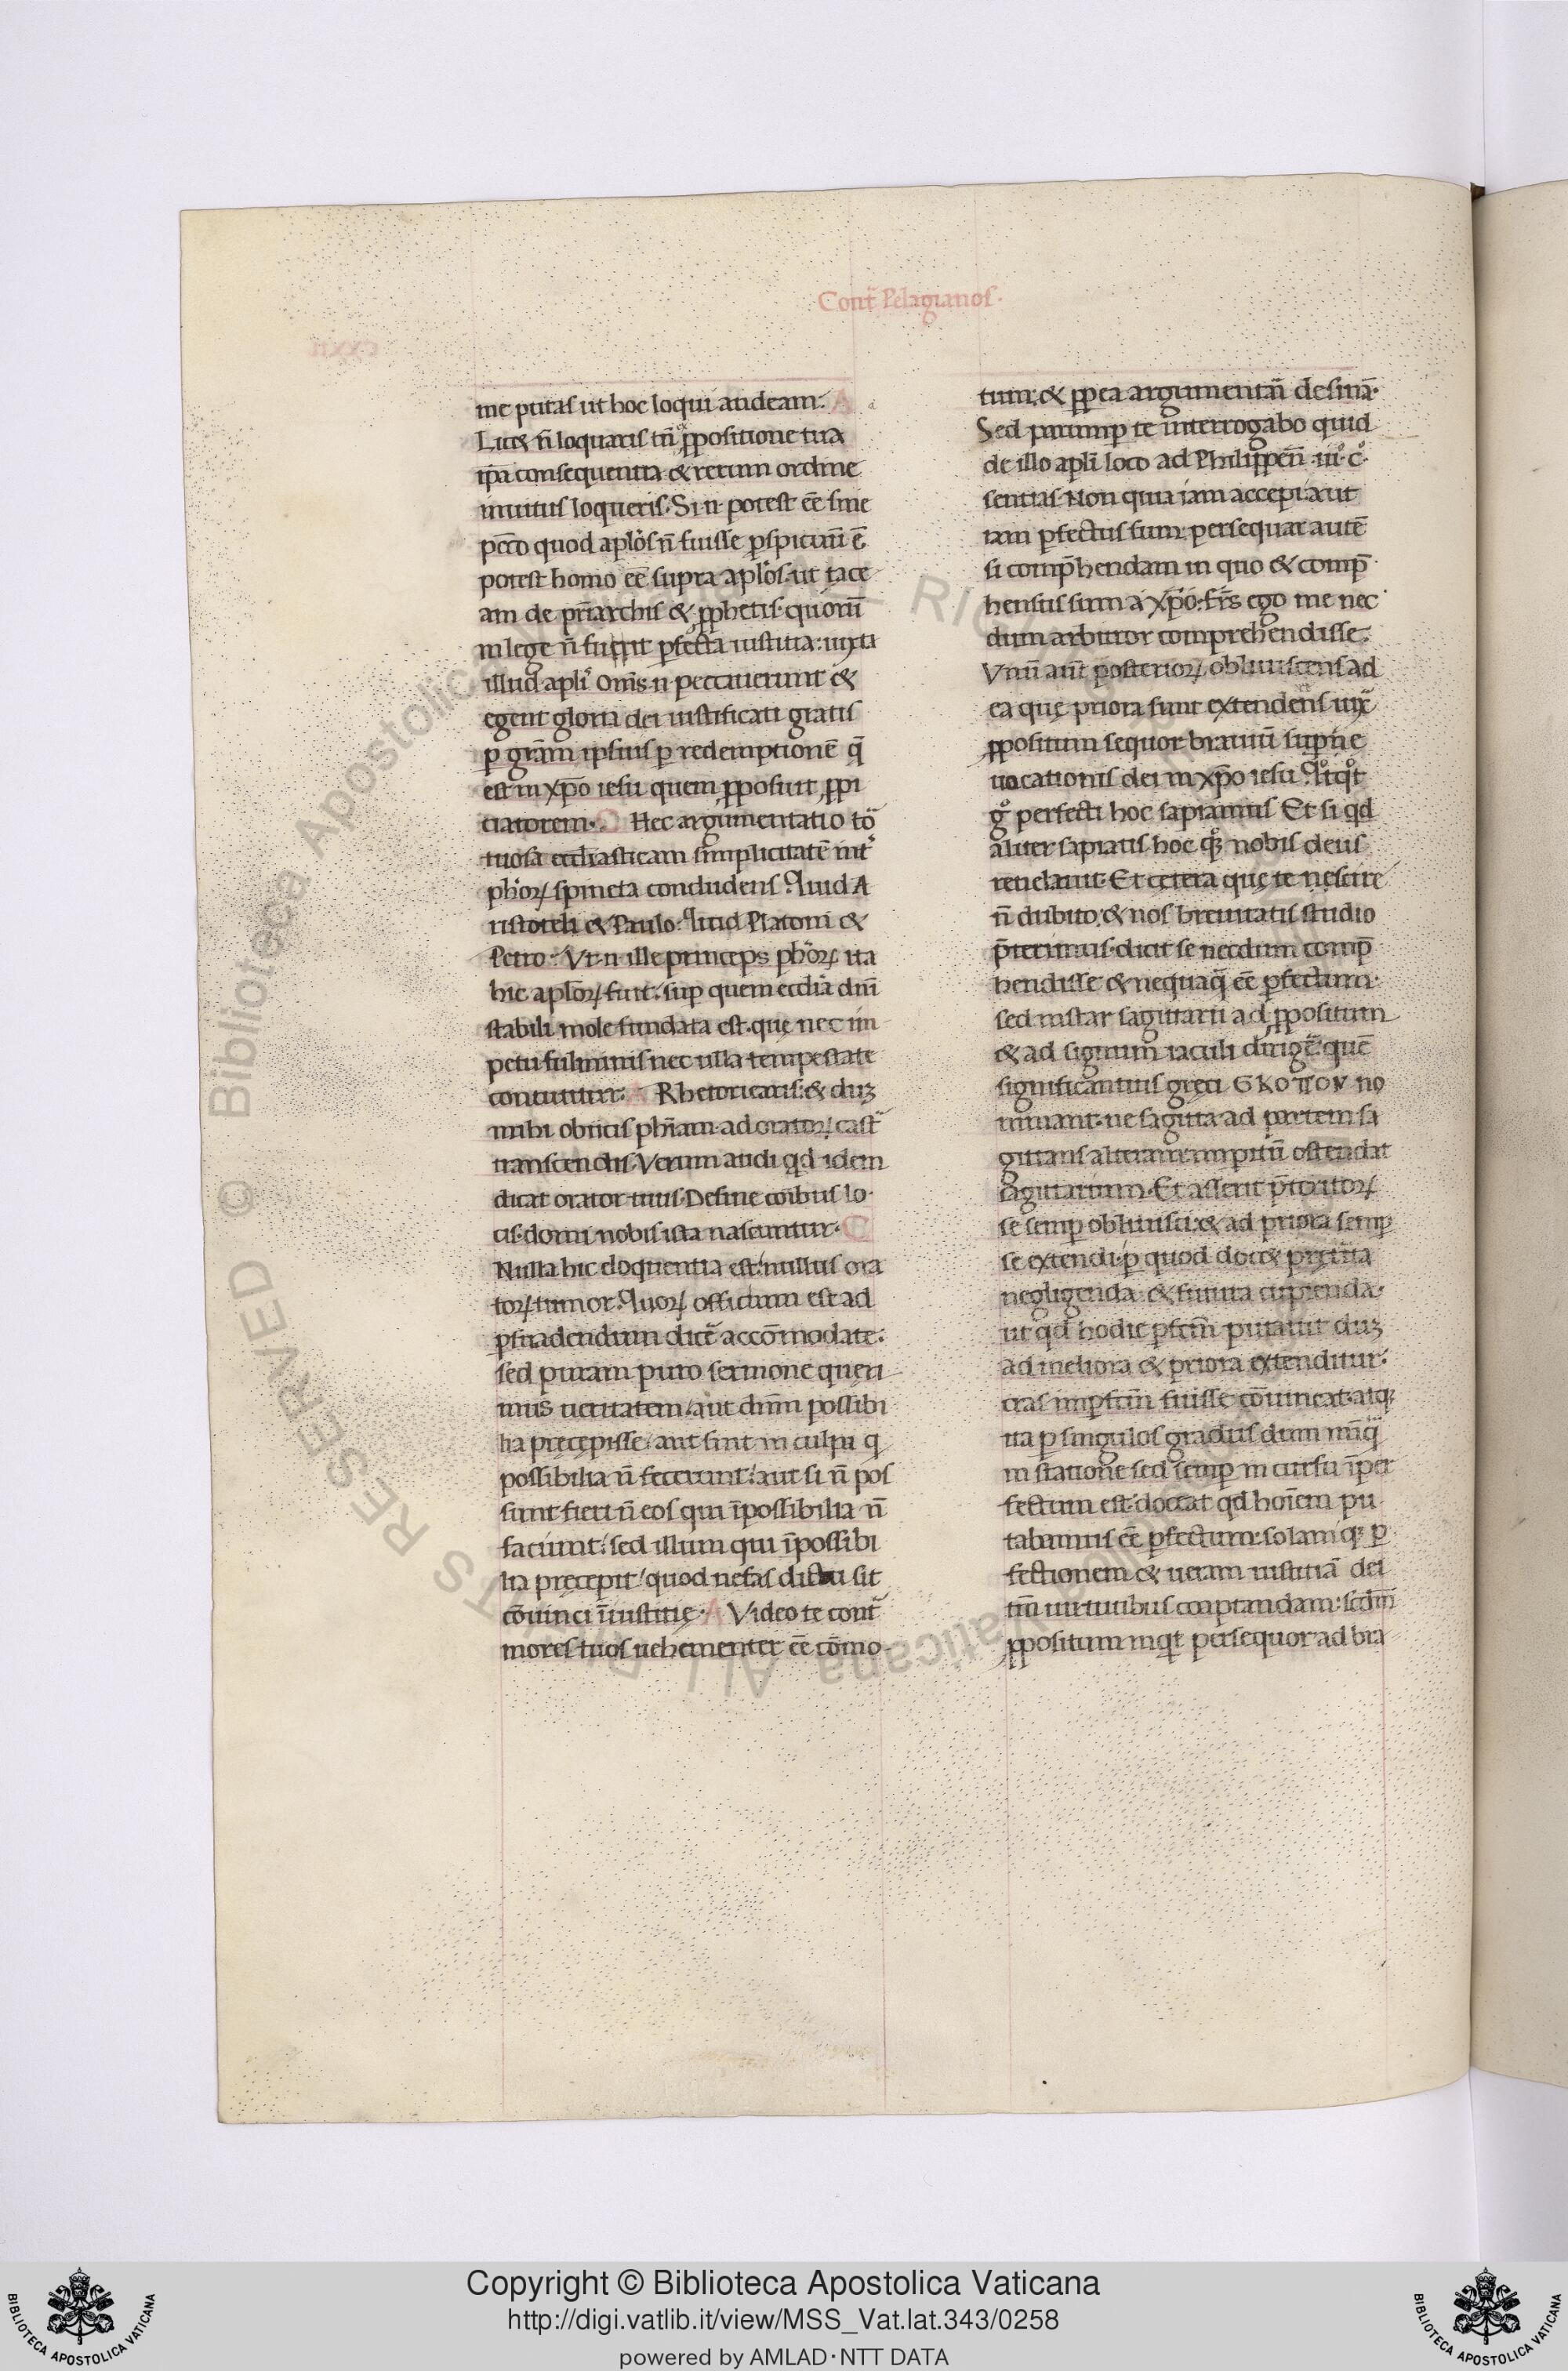 Cont̄ Pelagianos.
me putas ut hoc loqui audeam. A
Lic& n̄ loquaris tn̄ p̱positione tua
ip̄a consequentia & rerum ordine
inuitus loqueris. Si n̄ potest eē sine
pc̄c̄o quod apl̄os n̄ fuisse p̱spicuū ē
potest homo eē supra apl̄os. ut tace
am de pr̄iarchis & p̱phetis. quorū
in lege n̄ fuerit p̱fecta iustitia. iuxta
illud apl̄i Om̄s n̄ peccauerunt &
egent gloria dei iustificati gratis
p̱ grām ipsius p̱ redemptionē q̄
est in xp̄o iesu quem p̱posuit p̱pi
ciatorem. C Hec argumentatio to
tuosa eccl̄iasticam simplicitatē int̄
ph̄or̄ spineta concludens. Quid A
ristoteli & Paulo. Quid Platoni &
Petro. Vt n̄ ille princeps ph̄or̄ ita
hic apl̄or̄ fuit. sup̱ quem eccl̄ia dn̄i
stabili mole fundata est. quę nec im
petu fuluminis nec ulla tempestate
concutitur. A Rhetoricaris. & duꝫ
mihi obiicis ph̄iam. ad orator̄ cast̄
transcendis. Verum audi qd̄ idem
dicat orator tuus. Desine co̅ibus lo
cis. domi nobis ista nascuntur. C
Nulla hic eloquentia est. nullus ora
tor̄ tumor. Quor̄ officium est ad
p̱suadendum dicē accōmodate.
sed puram puro sermone quęri
mus ueritatem. aut dn̄m possibi
lia pręcepisse. aut sint in culpa q̱
possibilia n̄ fecerunt. aut si n̄ pos
sunt fieri n̄ eos qui īpossibilia n̄
faciunt. sed illum qui īpossibi
lia pręcepit/quod nefas dictu sit
cōuinci īiustitię. A Video te cont̄
mores tuos uehementer eē cōmo
tum. & p̱p ea argumentari desinā.
Sed parump̱ te interrogabo quid
de illo apl̄i loco ad Philippen̄ .iii. c.
sentias. Non quia iam accepi aut
iam p̱fectus sum. persequar autē
si comp̄hendam in quo & comp̄
hensus sum a xp̄o. Fr̄s ego me nec
dum arbitror comprehendisse.
Vnū aut̄ posterior̄ obliuiscens ad
ea quę priora sunt extendens iux̄
p̱positum sequor brauiū sup̱ne
uocationis dei in xp̄o iesu. Quotqot
g̊ perfecti hoc sapiamus. Et si qd
aliter sapiatis hoc qꝫ nobis deus
reuelauit. Et cętera quę te nescire
n̄ dubito. & nos breuitatis studio
p̄terimus. dicit se necdum comp̄
hendisse & nequaq̄ eē p̱fectum.
sed instar sagittarii ad p̱positum
& ad signum iaculi dirigē quē
significantius gręci GKOΠON no
minant. ne sagitta ad partem sa
gittans alteram imp̱itū ostendat
sagittarium. Et asserit p̄teritor̄
se semp̱ obliuisci. & ad priora semp̱
se extendi. p̱ quod doc& pręterita
negligenda. & futura cupienda.
ut qd̄ hodie p̱fcm̄ putauit duꝫ
ad meliora & priora extenditur.
cras imp̱fcm̄ fuisse cōuincat. atqꝫ
ita p̱ singulos gradus dum nūq̄
in statione sed semp̱ in cursu īper
fectum est. doceat qd̄ hoīem pu
tabamus eē p̱fectum. solamqꝫ p̱
fectionem & ueram iustitiā dei
tm̄ uirtutibus coaptandam. scdm̄
p̱positum inqt persequor ad bra
Copyright © Biblioteca Apostolica Vaticana
http://digi.vatlib.it/view/MSS_Vat.lat.343/0258
powered by AMLAD·NTT DATA